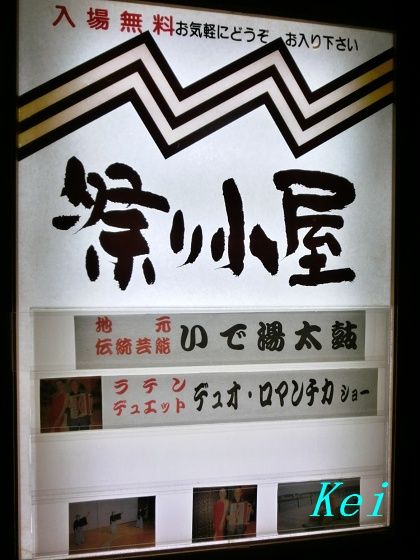 入場無料お気軽にどうぞ お入り下さい
祭り小屋
地元
伝統芸能 いで湯太鼓
ラテン
デュエット デュオ・ロマンチカ ショー
Kei